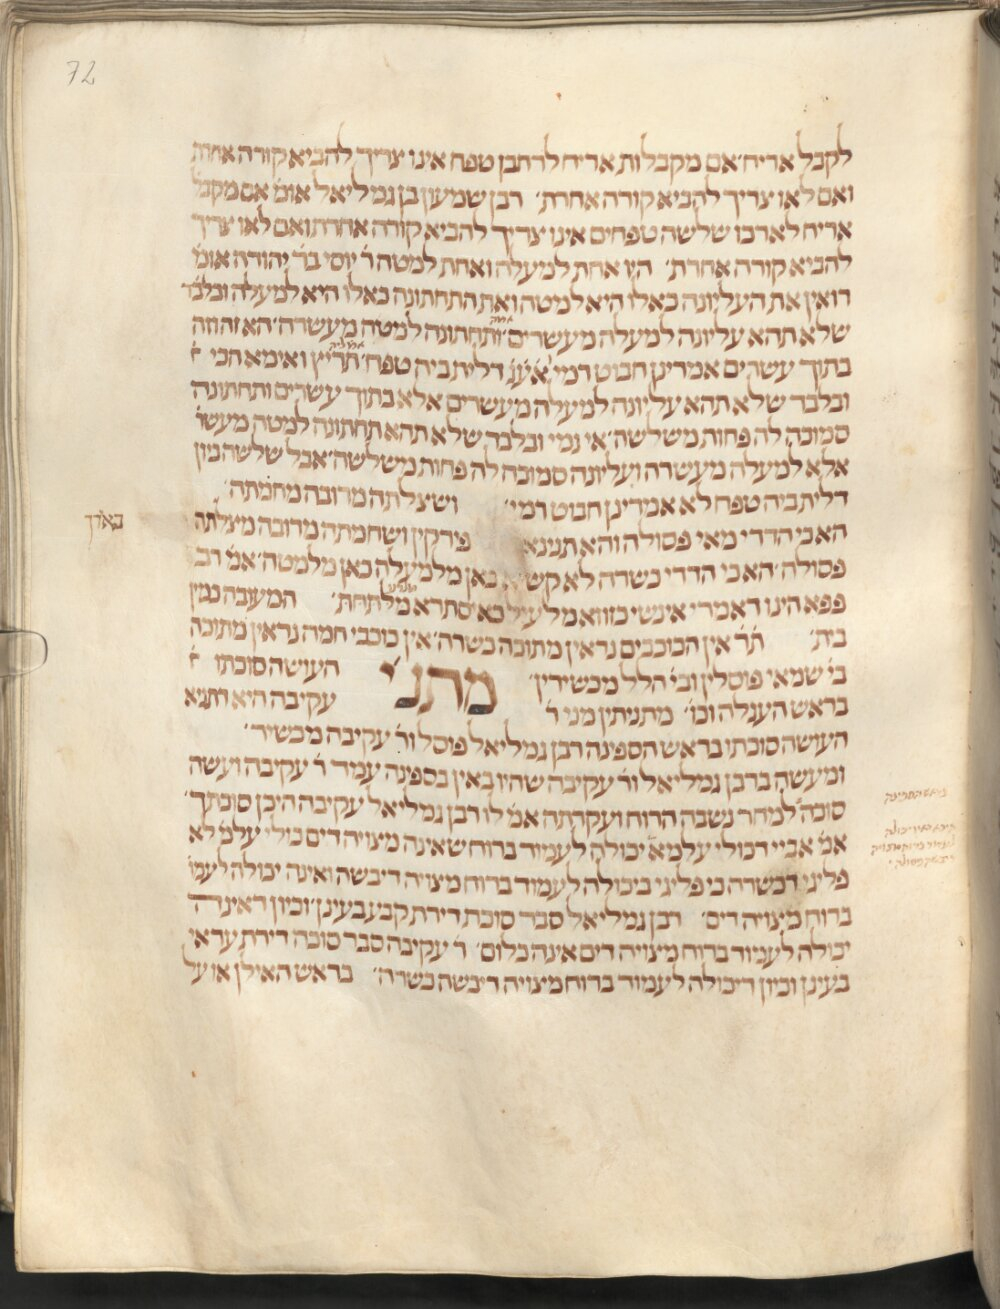 72
לקבל אריח׳ אם מקבלות אריח לרחבן טפח אינו צריך להביא קורה אחרת
ואם לאו צריך להביא קורה אחרת׳ רבן שמעון בן גמליאל אומ׳ אם מקבל׳
אריח לארכו שלשה טפחים אינו צריך להביא קורה אחרת ואם לאו צריך
להביא קורה אחרת׳ היו אחת למעלה ואחת למטה ר׳ יוסי בר׳ יהודה אומ׳
רואין את העליונה כאלו היא למטה ואת התחתונה כאלו היא למעלה ובלבד
שלא תהא עליונה למעלה מעשרים ותחתונה למטה מעשרה׳ הא זה וזה
בתוך עשרים אמרינן חבוט רמי דלית ביה טפח׳ תריץ ואימא הכי
ובלבד שלא תהא עליונה למעלה מעשרים אלא בתוך עשרים ותחתונה
סמוכה לה פחות משלשה׳ אי נמי ובלבד שלא תהא תחתונה למטה מעשר׳
אלא למעלה מעשרה ועליונה סמוכה לה פחות משלשה׳ אבל שלשה כיון
דלית ביה טפח לא אמרינן חבוט רמי׳ ושצלתה מרובה מחמתה׳
הא כי הדדי מאי פסולה והא תנינא פירקין ושחמתה מרובה מצלתה
באידך
פסולה׳ הא כי הדדי כשרה לא קשיא כאן מלמעלה כאן מלמטה׳ אמ׳ רב
פפא הינו דאמרי אינשי כזוזא מלעיל כאיסתרא מלתחת׳ המעובה כמין
בית׳ ת׳ר׳ אין הכוכבים נראין מתוכה כשרה׳ אין כוכבי חמה נראין מתוכה
בי׳ שמאי פוסלין ובי׳ הלל מכשירין׳ מתני׳ העושה סוכתו
בראש העגלה וכו׳ מתניתין מני ר׳ עקיבה היא דתניא
העושה סוכתו בראש הספינה רבן גמליאל פוסל ור׳ עקיבה מכשיר׳
ומעשה ברבן גמליאל ור׳ עקיבה שהיו באין בספינה עמד ר׳ עקיבה ועשה
סוכה למחר נשבה הרוח ועקרתה אמ׳ לו רבן גמליאל עקיבה היכן סוכתך׳
אמ׳ אביי דכולי עלמא יכולה לעמוד ברוח שאינה מצויה דים כולי עלמ׳ לא
פליגי דכשרה כי פליגי ביכולה לעמוד ברוח מצויה דיבשה ואינה יכולה לעמו׳
ברוח מצויה דים׳ רבן גמליאל סבר סוכת דירת קבע בעינן׳ וכיון דאינה
יכולה לעמוד ברוח מצויה דים אינה כלום׳ ר׳ עקיבה סבר סוכה דירת עראי
בעינן וכיון דיכולה לעמוד ברוח מצויה דיבשה כשרה׳ בראש האילן או על